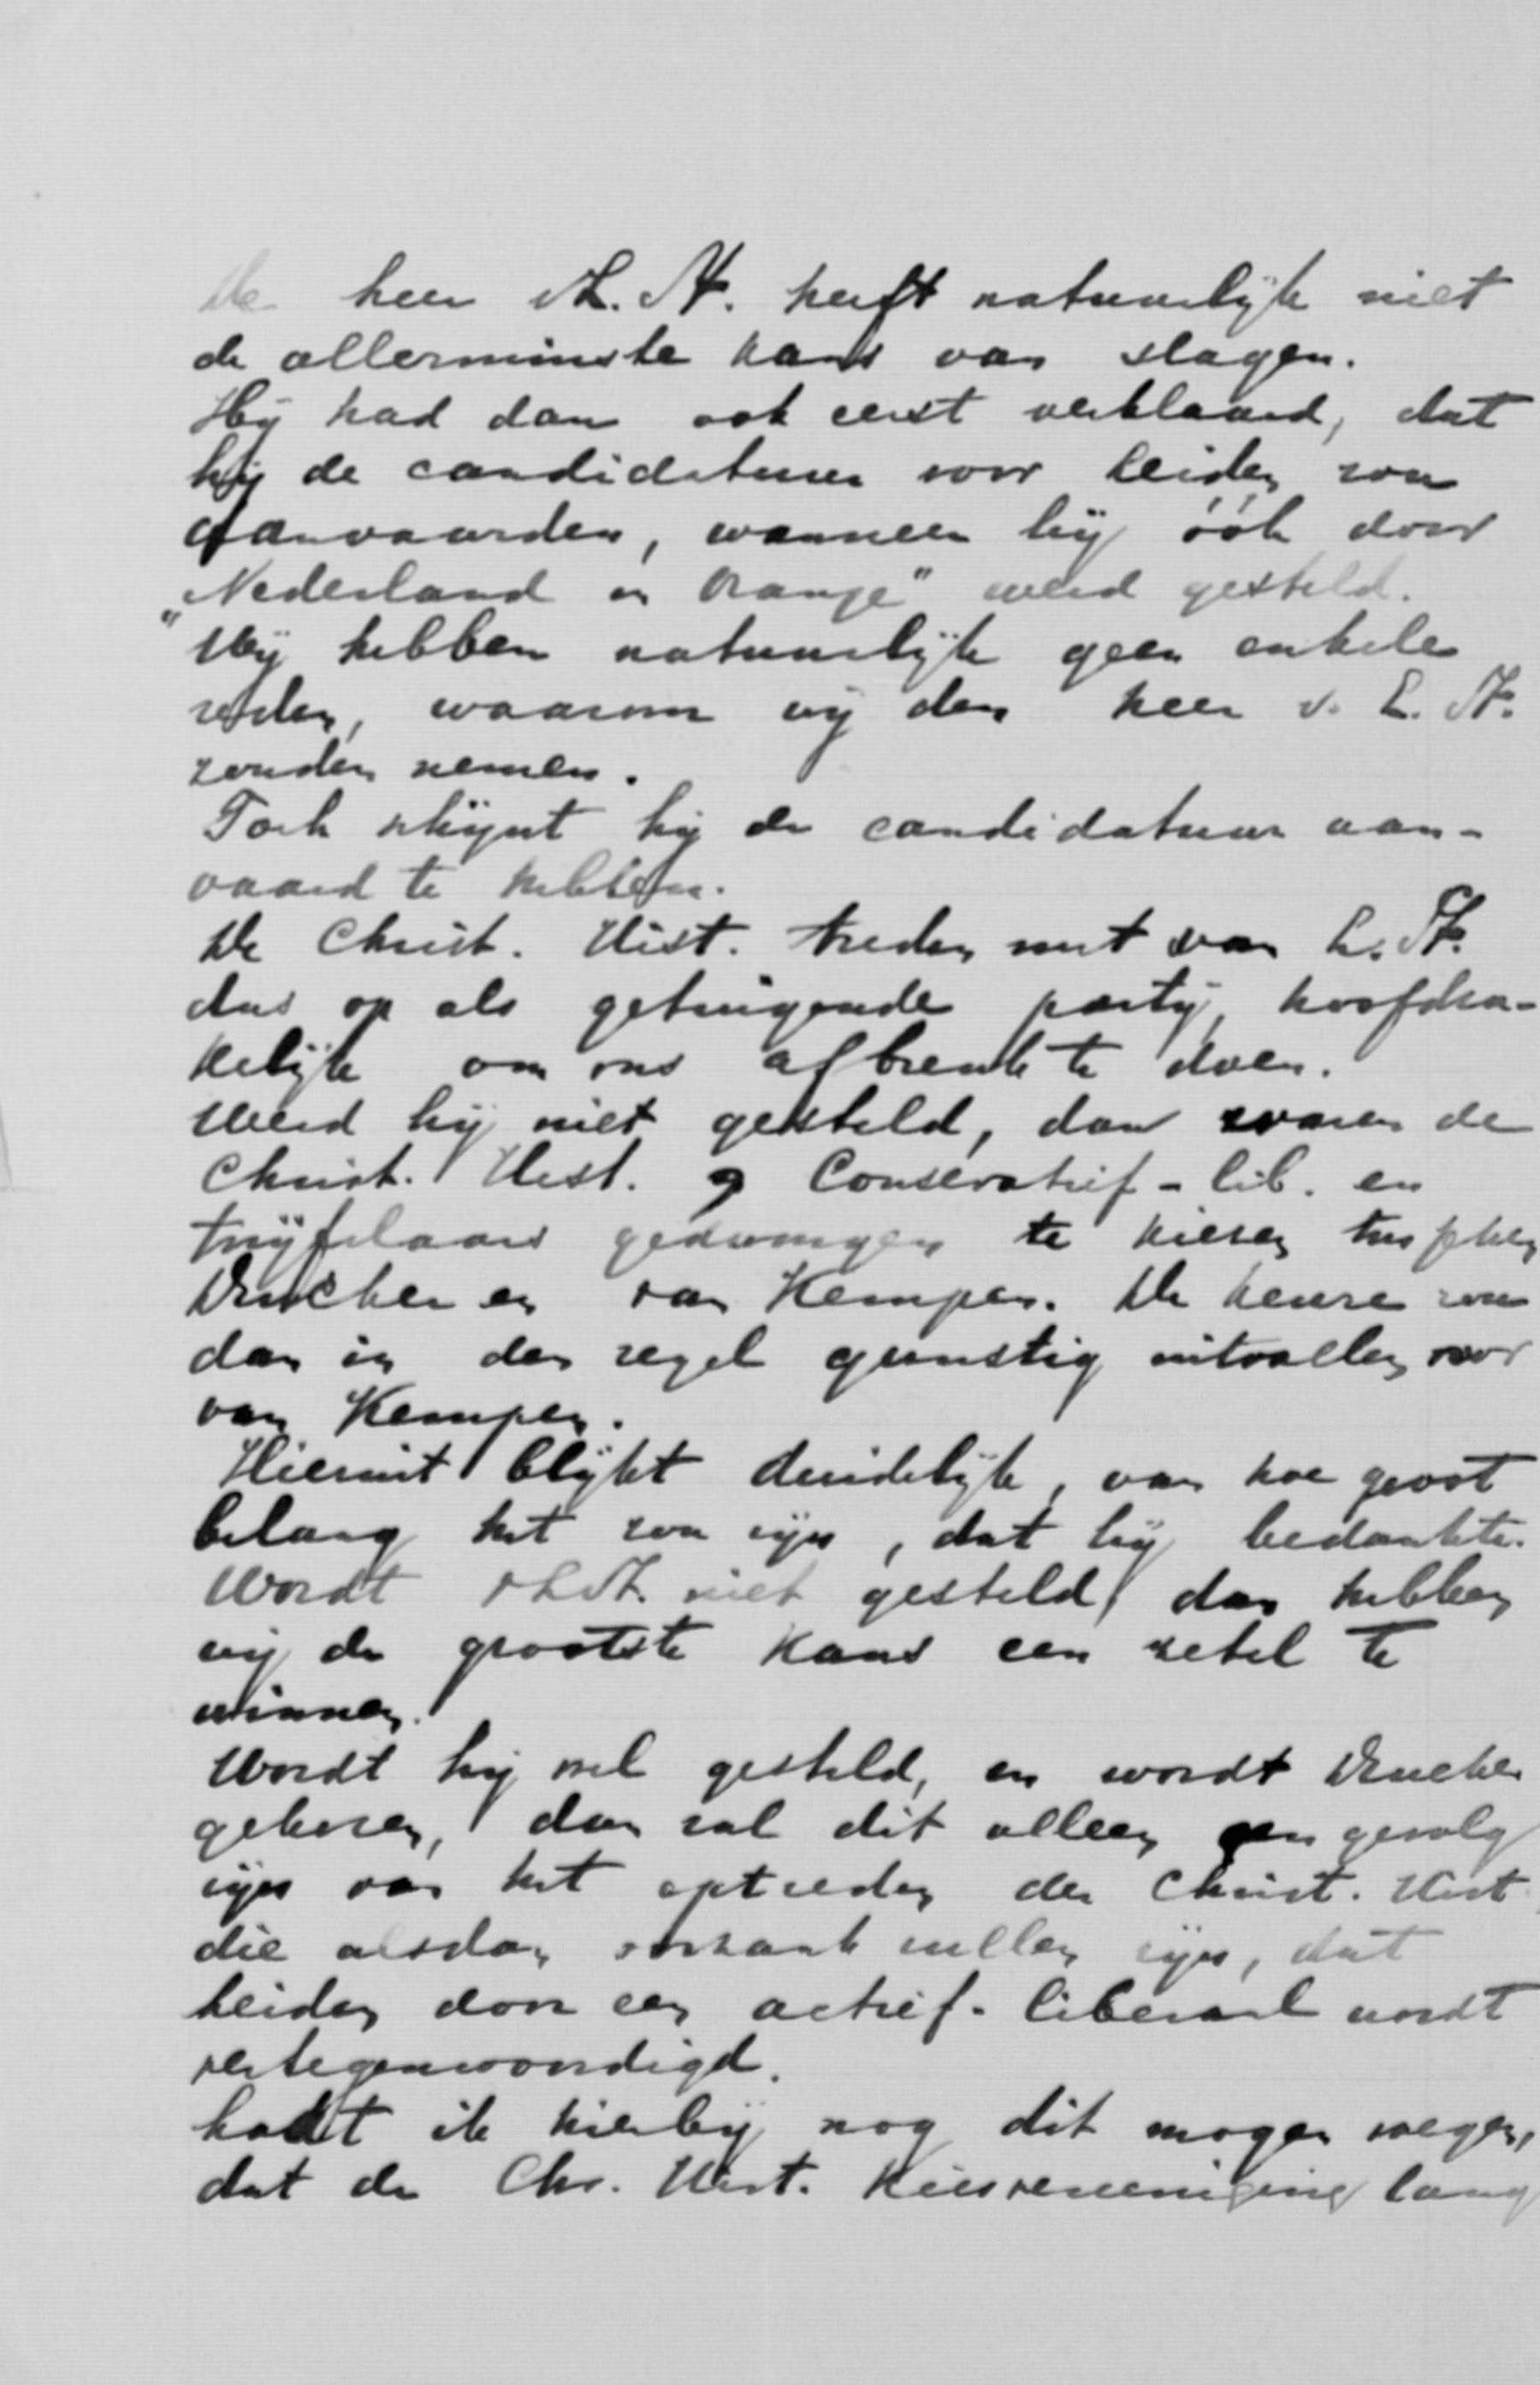 De heer v. L. St. heeft natuurlijk niet
de allerminste kans van slagen.
Hij had dan ook eerst verklaard, dat
hij de candidatuur voor Leiden zou
aanvaarden, wanneer hij óók door
„Nederland en Oranje" werd gesteld.
Wij hebben natuurlijk geen enkele
reden, waarom wij den heer v. L. St.
zouden nemen.
Toch schijnt hij de candidatuur aan-
vaard te hebben.
De Christ. Hist. treden met van L. St.
dus op als getuigende partij, hoofdza-
kelijk om ons afbreuk te doen.
Werd hij niet gesteld, dan waren de
Christ. Hist. Conservatief-lib. en
twijfelaars gedwongen te kiezen tusschen
Drucker en van Kempen. De keuze zou
dan in den regel gunstig uitvallen voor
van Kempen.
Hieruit blijkt duidelijk, van hoe groot
belang het zou zijn, dat hij bedankte.
Wordt v L St. niet gesteld, dan hebben
wij de grootste kans een zetel te
winnen.
Wordt hij wel gesteld, en wordt Drucker
gekozen, dan zal dit alleen een gevolg
zijn van het optreden der Christ. Hist
die alsdan oorzaak zullen zijn, dat
Leiden door een actief-liberaal wordt
vertegenwoordigd.
ik hierbij nog dit mogen voegen,
dat de Chr. Hist. Kiesvereeniging lang